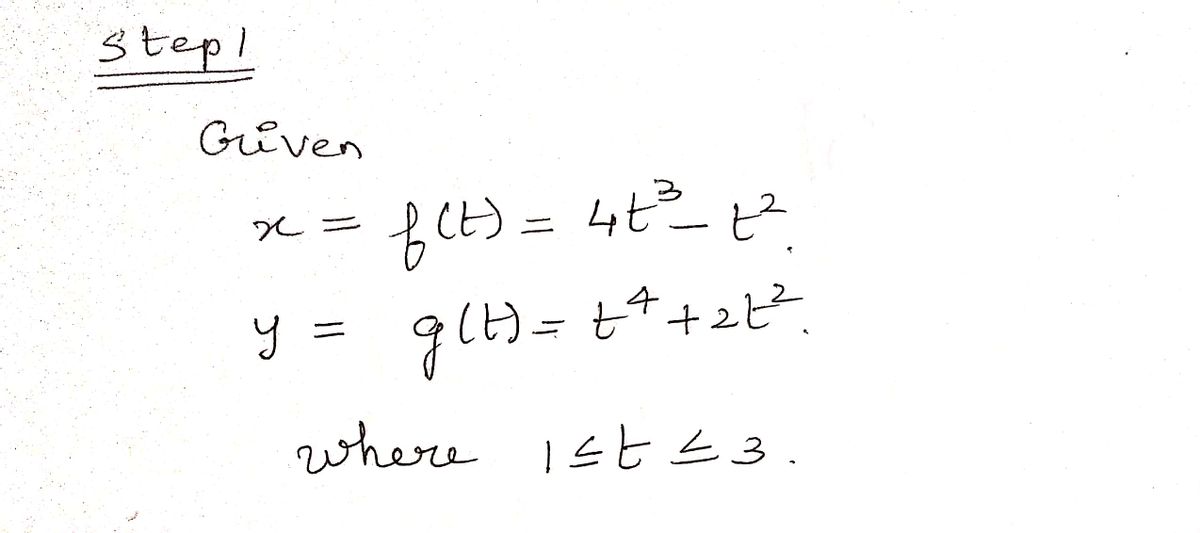 Step 1
Given
x = f(t) = 4t³ - t².
y = g(t) = t⁴ + 2t².
where 1 ≤ t ≤ 3.